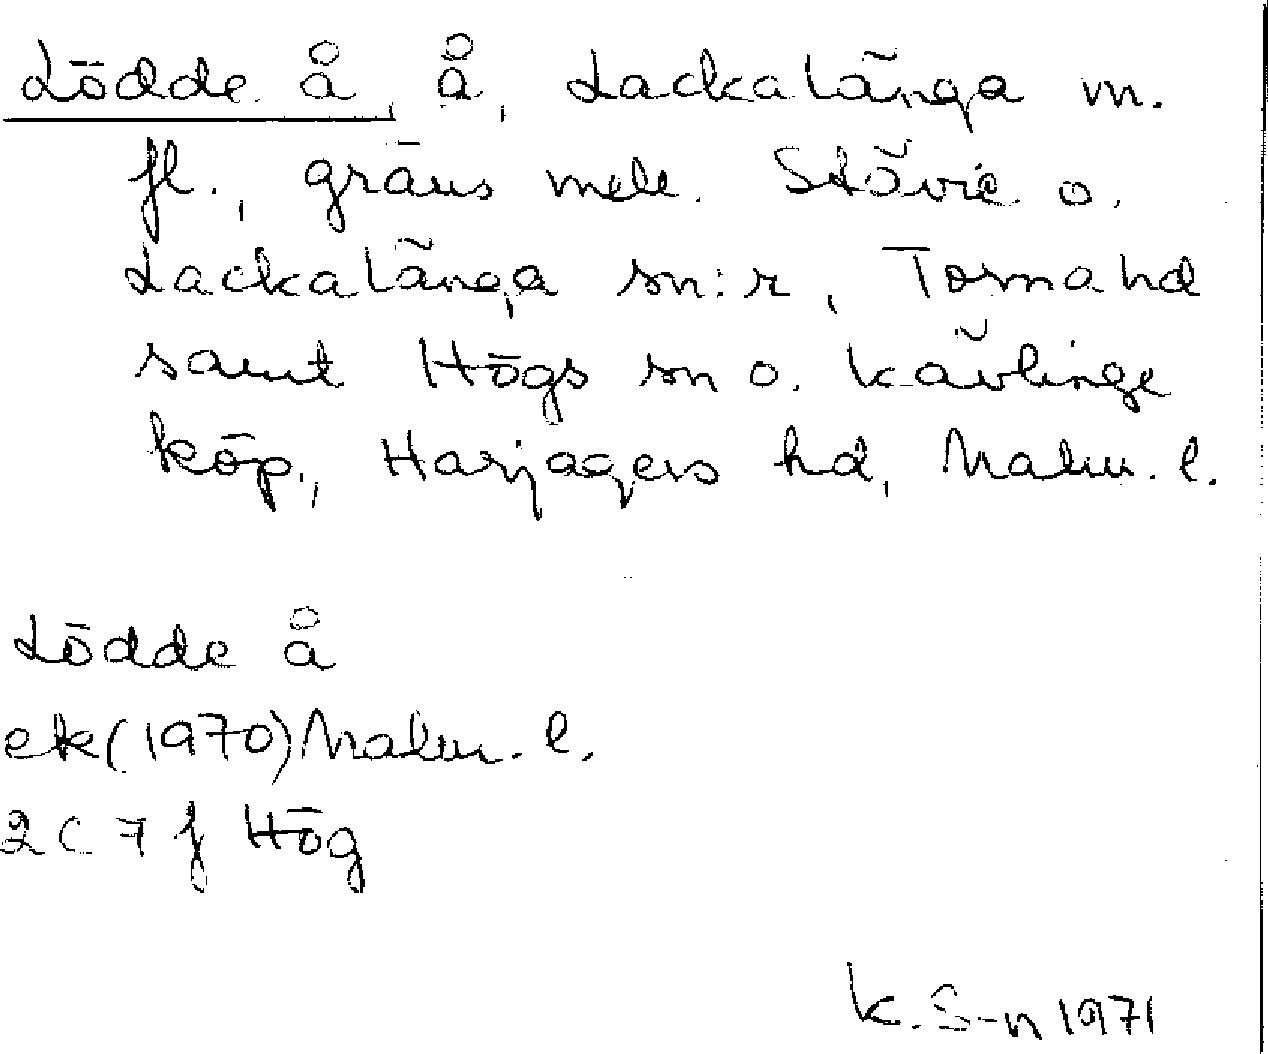 Lödde å, å, Lackalänga m.
fl., gräns mell. Stävie o.
Lackalänga sn:r, Torna hd
samt Högs sn o. Kävlinge
köp., Harjagers hd, Malm. l.
Lödde å
ek (1970) Malm. l.
2C 7f Hög
K. S-n 1971